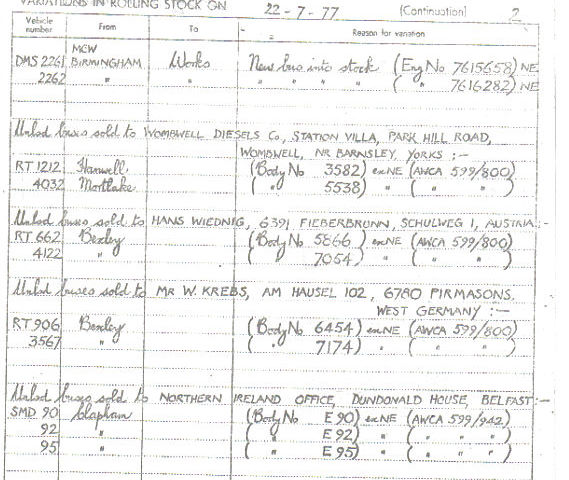 VARIATIONS IN ROLLING STOCK ON 22-7-77 (Continuation) 2
Vehicle number From To Reason for variation
MCW
DMS 2261 BIRMINGHAM Works New bus into stock (Eng No 7615658) NE
2262 " " " " " " ( " 7616282) NE
Unlsd buses sold to WOMBWELL DIESELS Co, STATION VILLA, PARK HILL ROAD,
WOMBWELL, NR BARNSLEY, YORKS :-
RT 1212 Hanwell (Body No 3582) ex NE (AWCA 599/800)
4032 Mortlake ( " 5538) " ( " " )
Unlsd buses sold to HANS WIEDNIG, 6391 FIEBERBRUNN, SCHULWEG 1, AUSTRIA:-
RT 662 Bexley (Body No 5866) ex NE (AWCA 599/800)
4122 " ( " 7054) " ( " " )
Unlsd buses sold to MR W. KREBS, AM HAUSEL 102, 6780 PIRMASONS.
WEST GERMANY :-
RT 906 Bexley (Body No 6454) ex NE (AWCA 599/800)
3567 " ( " 7174) " ( " " )
Unlsd buses sold to NORTHERN IRELAND OFFICE, DUNDONALD HOUSE, BELFAST:-
SMD 90 Clapham (Body No E 90) ex NE (AWCA 599/942)
92 " ( " E 92) " ( " " " )
95 " ( " E 95) " ( " " " )